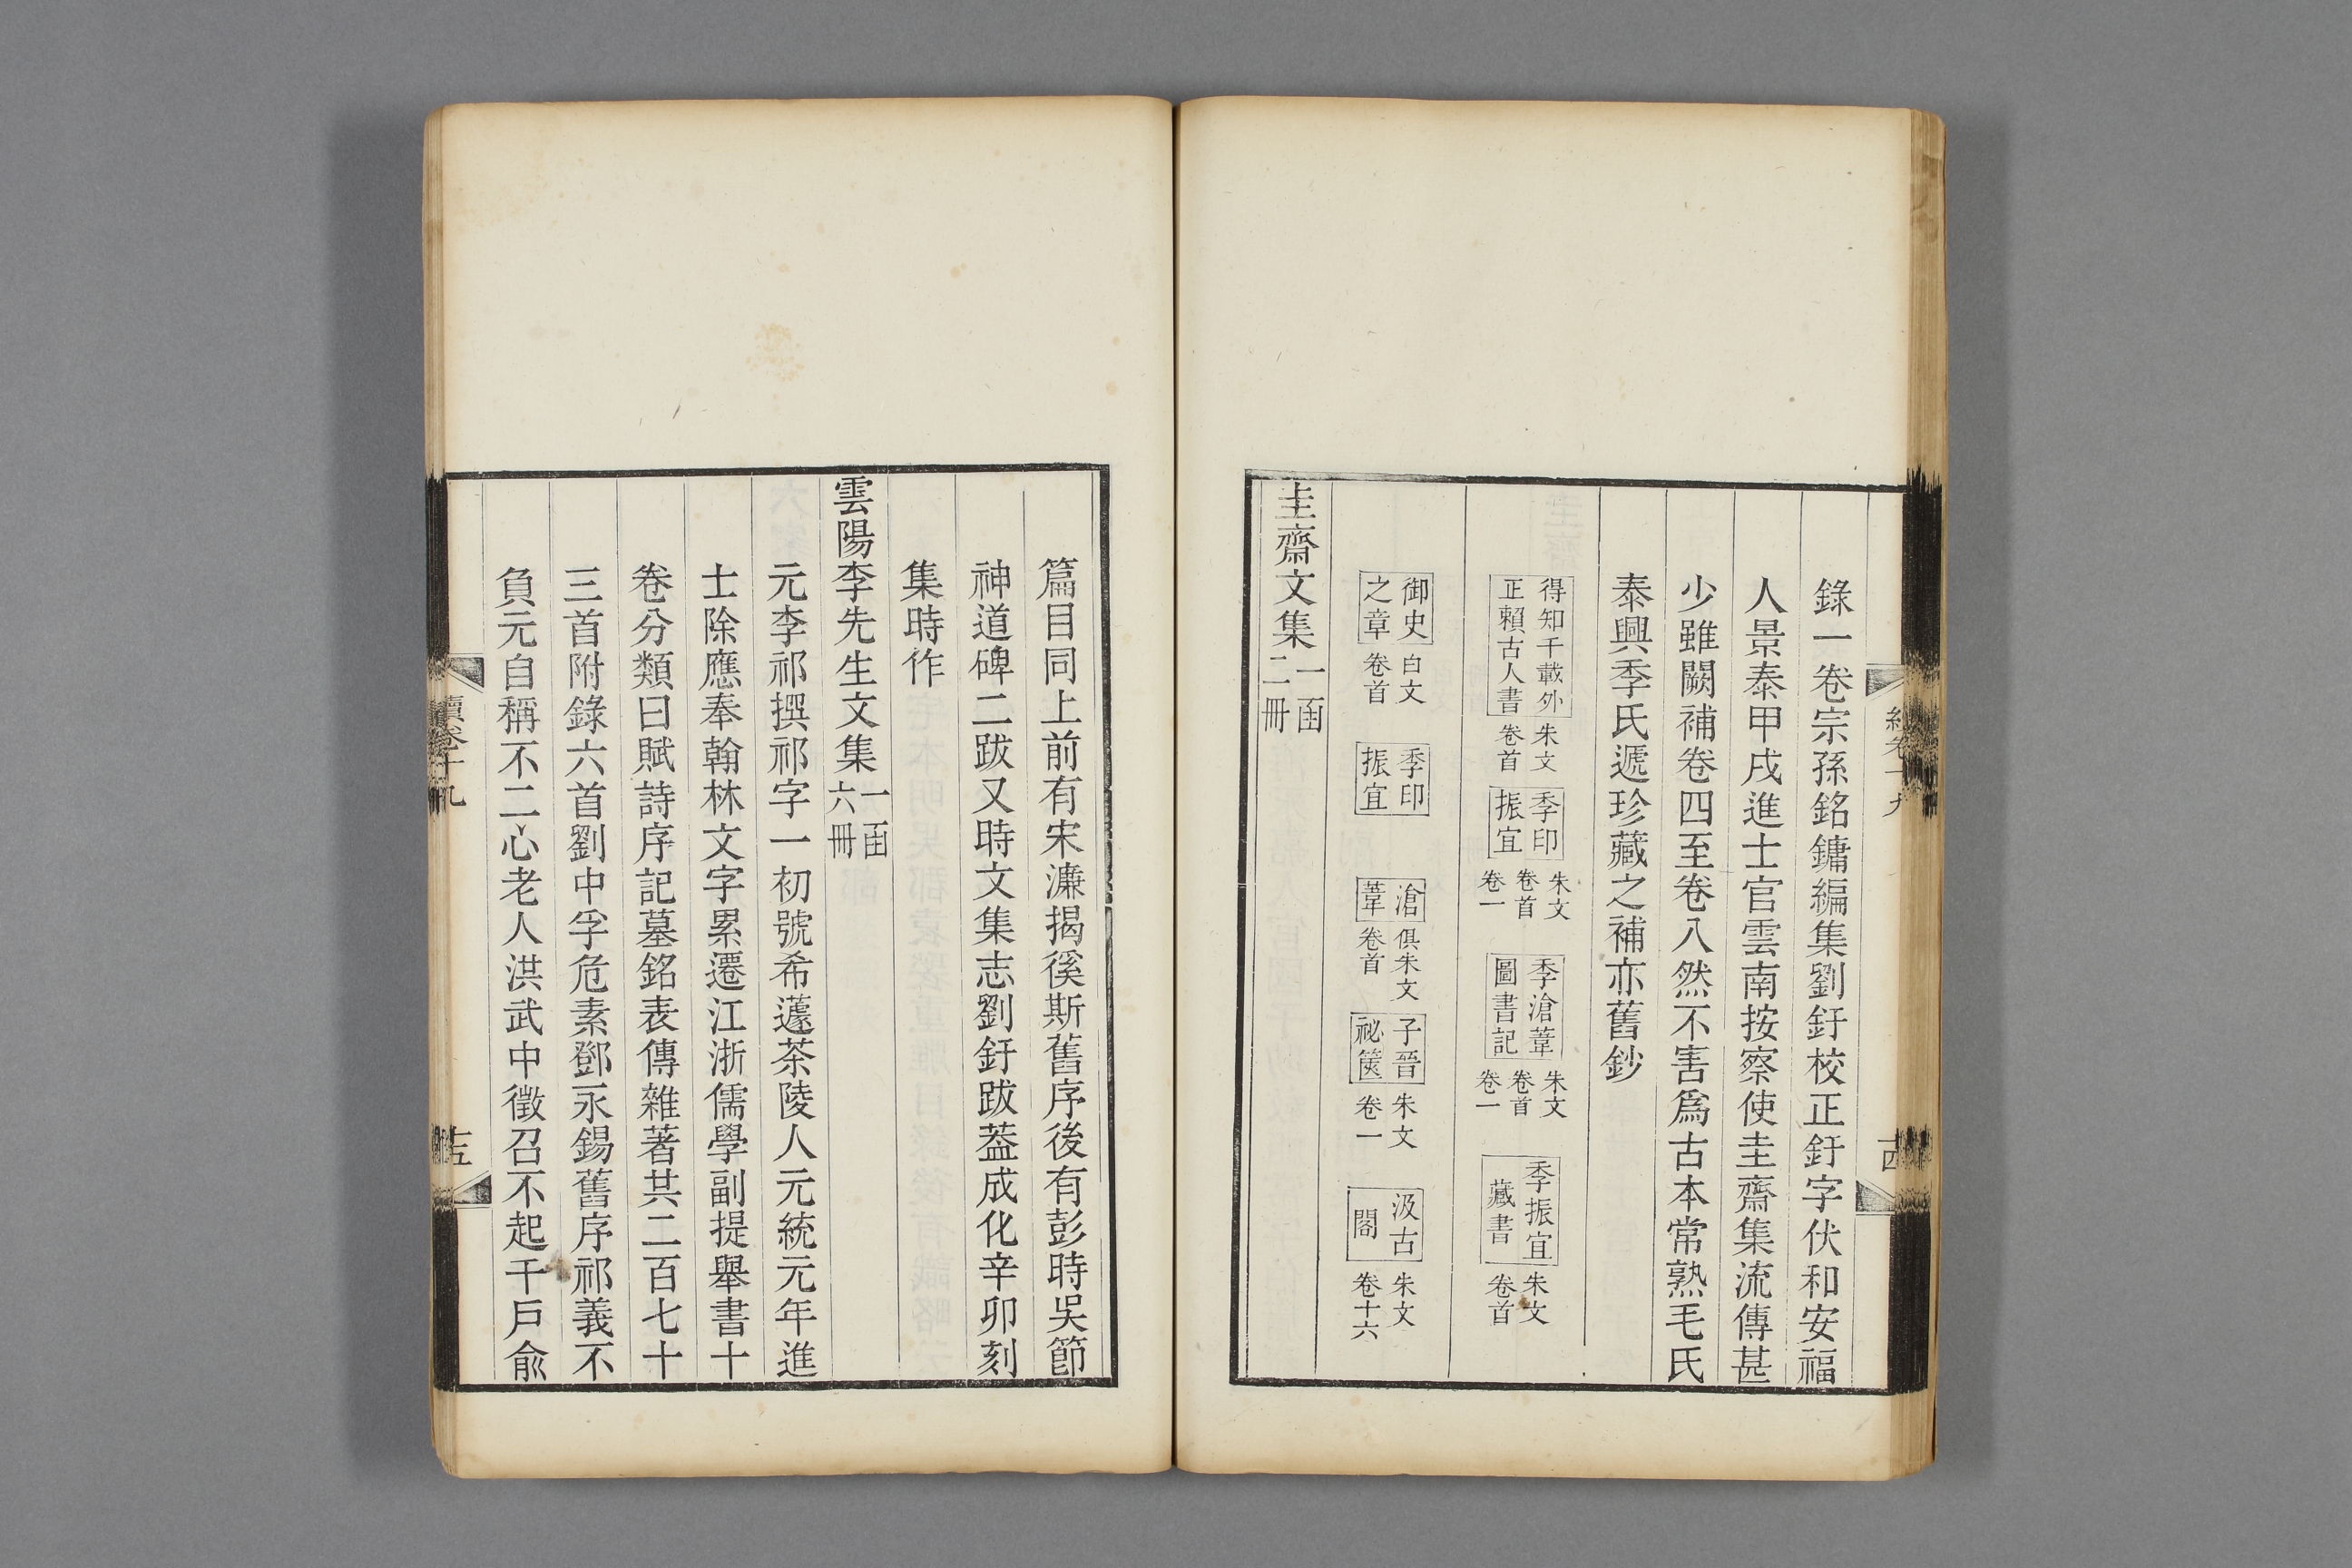 錄一卷宗孫銘鏞編集劉釪校正釪字伏和安福
人景泰甲戌進士官雲南按察使圭齋集流傳甚
少雖闕補卷四至卷八然不害爲古本常熟毛氏
泰興季氏遞珍藏之補亦舊鈔
得知千載外正賴古人書 朱文卷首 季印振宜 朱文卷首卷一 季滄葦圖書記 朱文卷首卷一 季振宜藏書 朱文卷首
御史之章 白文卷首 季印振宜 滄葦 俱朱文卷首 子晉祕篋 朱文卷一 汲古閣 朱文卷十六
圭齋文集 一函二冊
篇目同上前有宋濂揭徯斯舊序後有彭時吳節
神道碑二跋又時文集志劉釪跋葢成化辛卯刻
集時作
雲陽李先生文集 一函六冊
元李祁撰祁字一初號希蘧茶陵人元統元年進
士除應奉翰林文字累遷江浙儒學副提舉書十
卷分類曰賦詩序記墓銘表傳雜著共二百七十
三首附錄六首劉中孚危素鄧永錫舊序祁義不
負元自稱不二心老人洪武中徵召不起千戶俞
續卷十九
十五